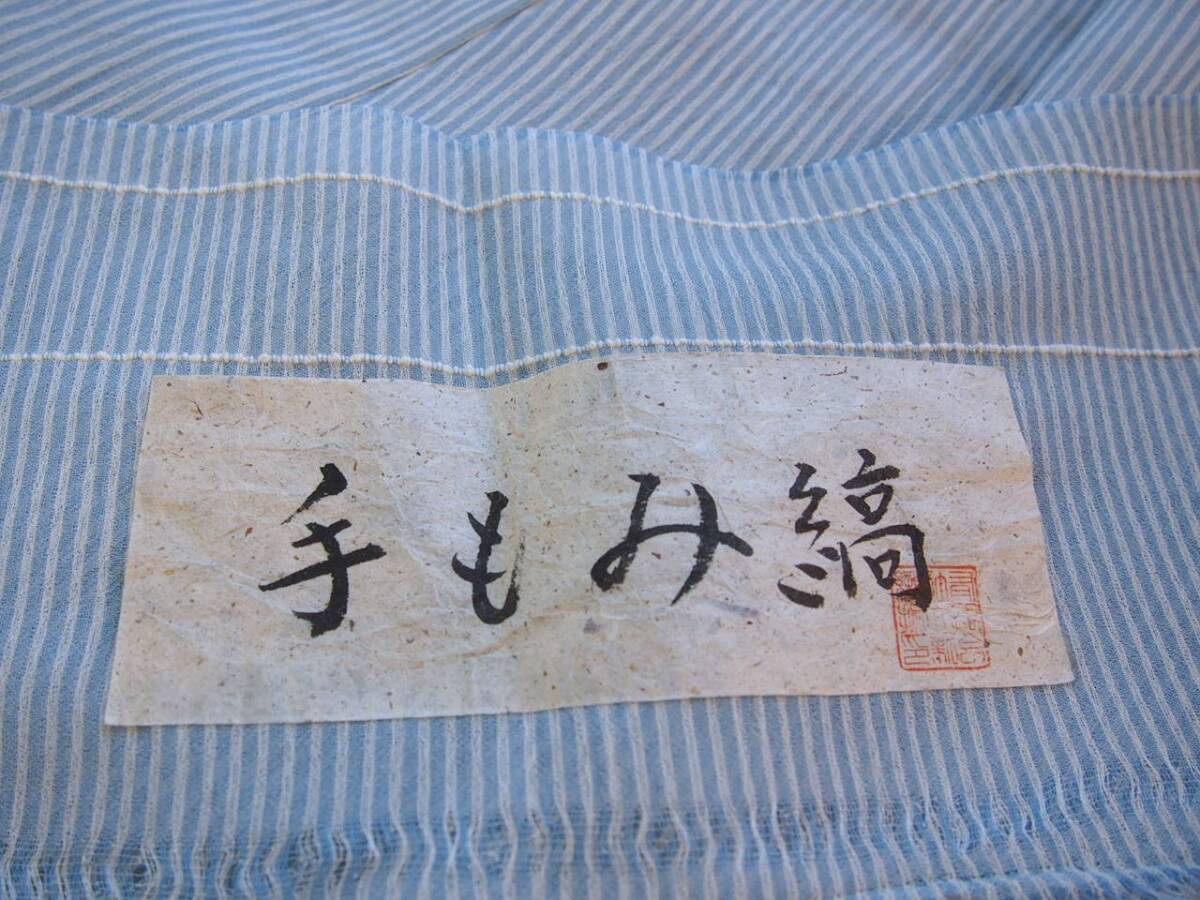 手もみ縞